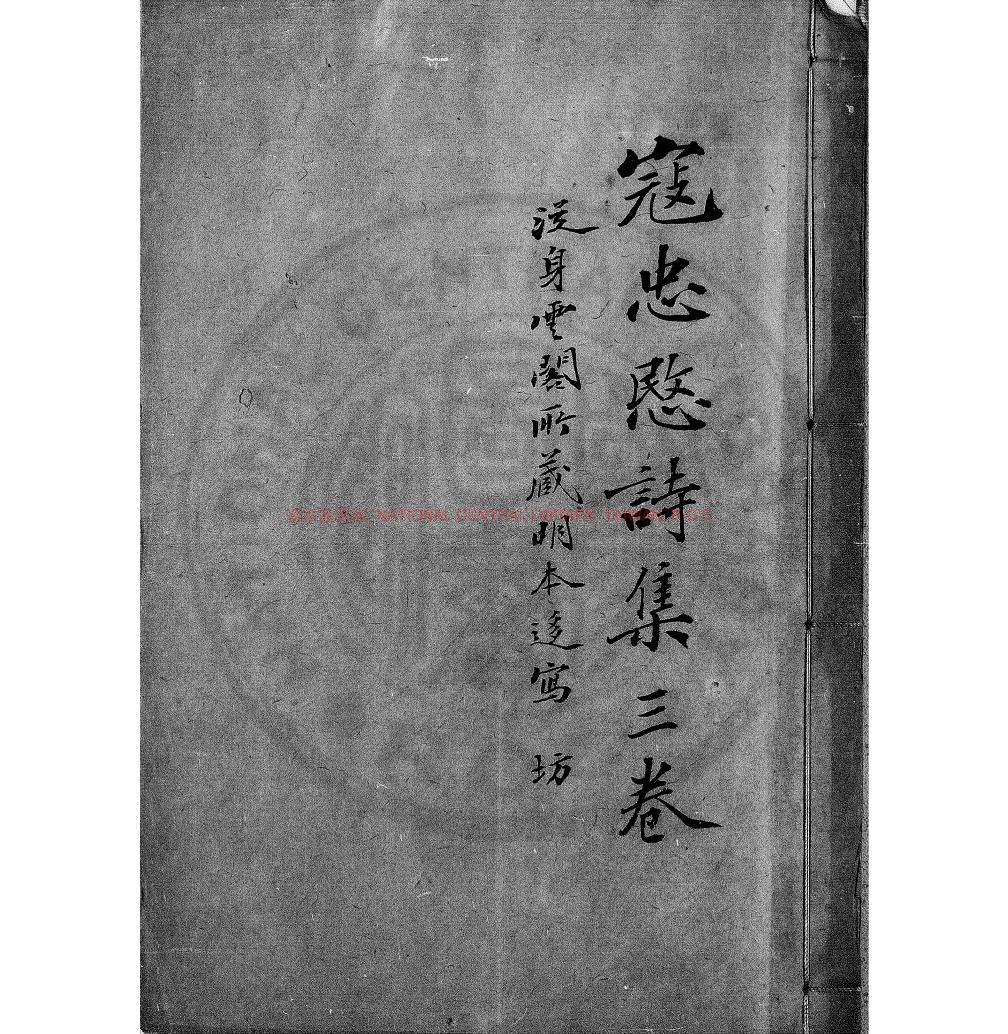 寇忠愍詩集三卷
從身雲閣所藏明本逵寫 坊
NATIONAL CENTRAL LIBRARY, TAIWAN, R.O.C.